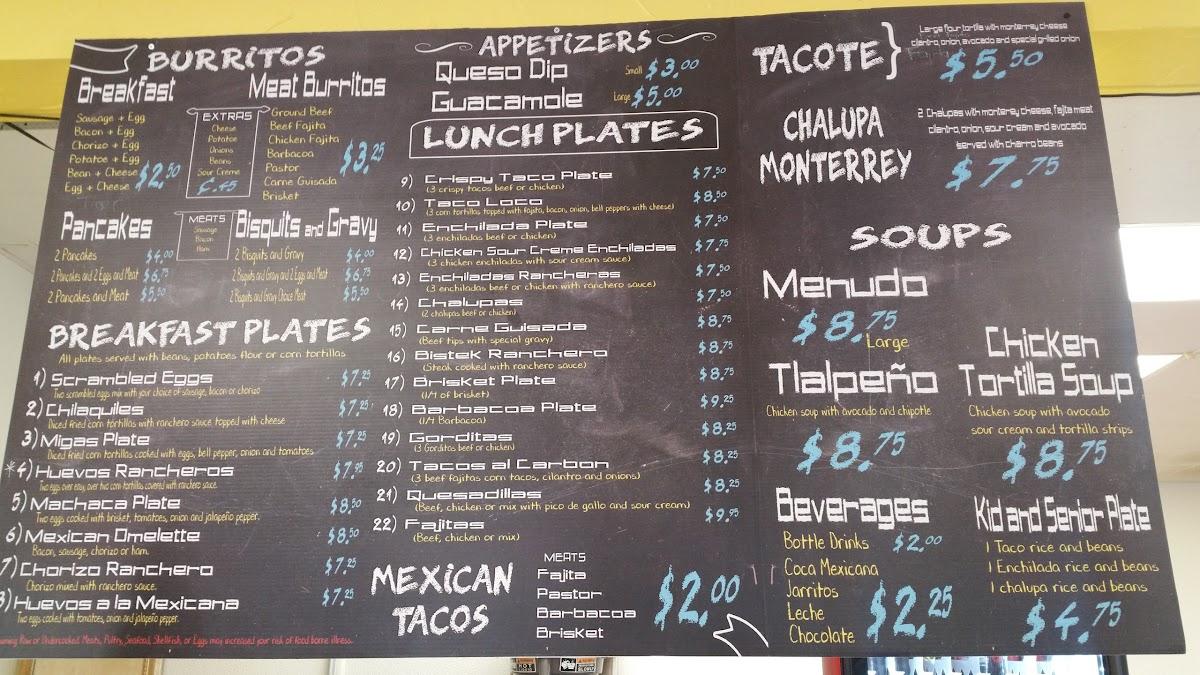 BURRITOS
Breakfast
Sausage + Egg
Bacon + Egg
Chorizo + Egg
Potatoe + Egg
Bean + Cheese
Egg + Cheese
$2.50
EXTRAS
Cheese
Potatoe
Onions
Beans
Sour Creme
¢.45
Meat Burritos
Ground Beef
Beef Fajita
Chicken Fajita
Barbacoa
Pastor
Carne Guisada
Brisket
$3.25
Pancakes
2 Pancakes $4.00
2 Pancakes and 2 Eggs and Meat $6.75
2 Pancakes and Meat $5.50
MEATS
Sausage
Bacon
Ham
Bisquits and Gravy
2 Bisquits and Gravy $4.00
2 Bisquits and Gravy and 2 Eggs and Meat $6.75
2 Bisquits and Gravy Choice Meat $5.50
BREAKFAST PLATES
All plates served with beans, potatoes flour or corn tortillas
1) Scrambled Eggs $7.25
Two scrambled eggs mix with your choice of sausage, bacon or chorizo
2) Chilaquiles $7.25
Diced fried corn tortillas with ranchero sauce topped with cheese
3) Migas Plate $7.25
Diced fried corn tortillas cooked with eggs, bell pepper, onion and tomatoes
*4) Huevos Rancheros $7.95
Two eggs over easy, over two corn tortillas covered with ranchero sauce.
5) Machaca Plate $8.50
Two eggs cooked with brisket, tomatoes, onion and jalapeño pepper.
6) Mexican Omelette $8.50
Bacon, sausage, chorizo or ham.
7) Chorizo Ranchero $7.25
Chorizo mixed with ranchero sauce.
8) Huevos a la Mexicana $7.25
Two eggs cooked with tomatoes, onion and jalapeño pepper.
Raw or Undercooked Meats, Poultry, Seafood, Shellfish, or Eggs may increased your risk of food borne illness.
APPETIZERS
Queso Dip
Guacamole
Small $3.00
Large $5.00
LUNCH PLATES
9) Crispy Taco Plate $7.50
(3 crispy tacos beef or chicken)
10) Taco Loco $8.50
(3 corn tortillas topped with fajita, bacon, onion, bell peppers with cheese)
11) Enchilada Plate $7.50
(3 enchiladas beef or chicken)
12) Chicken Sour Creme Enchiladas $7.75
(3 chicken enchiladas with sour cream sauce)
13) Enchiladas Rancheras $7.50
(3 enchiladas beef or chicken with ranchero sauce)
14) Chalupas $7.50
(2 chalupas beef or chicken)
15) Carne Guisada $8.75
(Beef tips with special gravy)
16) Bistek Ranchero $8.75
(Steak cooked with ranchero sauce)
17) Brisket Plate $8.75
(1/4 of brisket)
18) Barbacoa Plate $9.25
(1/4 Barbacoa)
19) Gorditas $8.25
(3 Gorditas beef or chicken)
20) Tacos al Carbon $8.25
(3 beef fajitas corn tacos, cilantro and onions)
21) Quesadillas $8.25
(Beef, chicken or mix with pico de gallo and sour cream)
22) Fajitas $9.95
(Beef, chicken or mix)
MEXICAN
TACOS
MEATS
Fajita
Pastor
Barbacoa
Brisket
$2.00
TACOTE}
Large flour tortilla with monterrey cheese
cilantro, onion, avocado and special grilled onion
$5.50
CHALUPA
MONTERREY
2 Chalupas with monterey cheese, fajita meat
cilantro, onion, sour cream and avocado
served with charro beans
$7.75
SOUPS
Menudo
$8.75
Large
Tlalpeño
Chicken soup with avocado and chipotle
$8.75
Chicken
Tortilla Soup
Chicken soup with avocado
sour cream and tortilla strips
$8.75
Beverages
Bottle Drinks $2.00
Coca Mexicana
Jarritos
Leche
Chocolate
$2.25
Kid and Senior Plate
1 Taco rice and beans
1 Enchilada rice and beans
1 chalupa rice and beans
$4.75